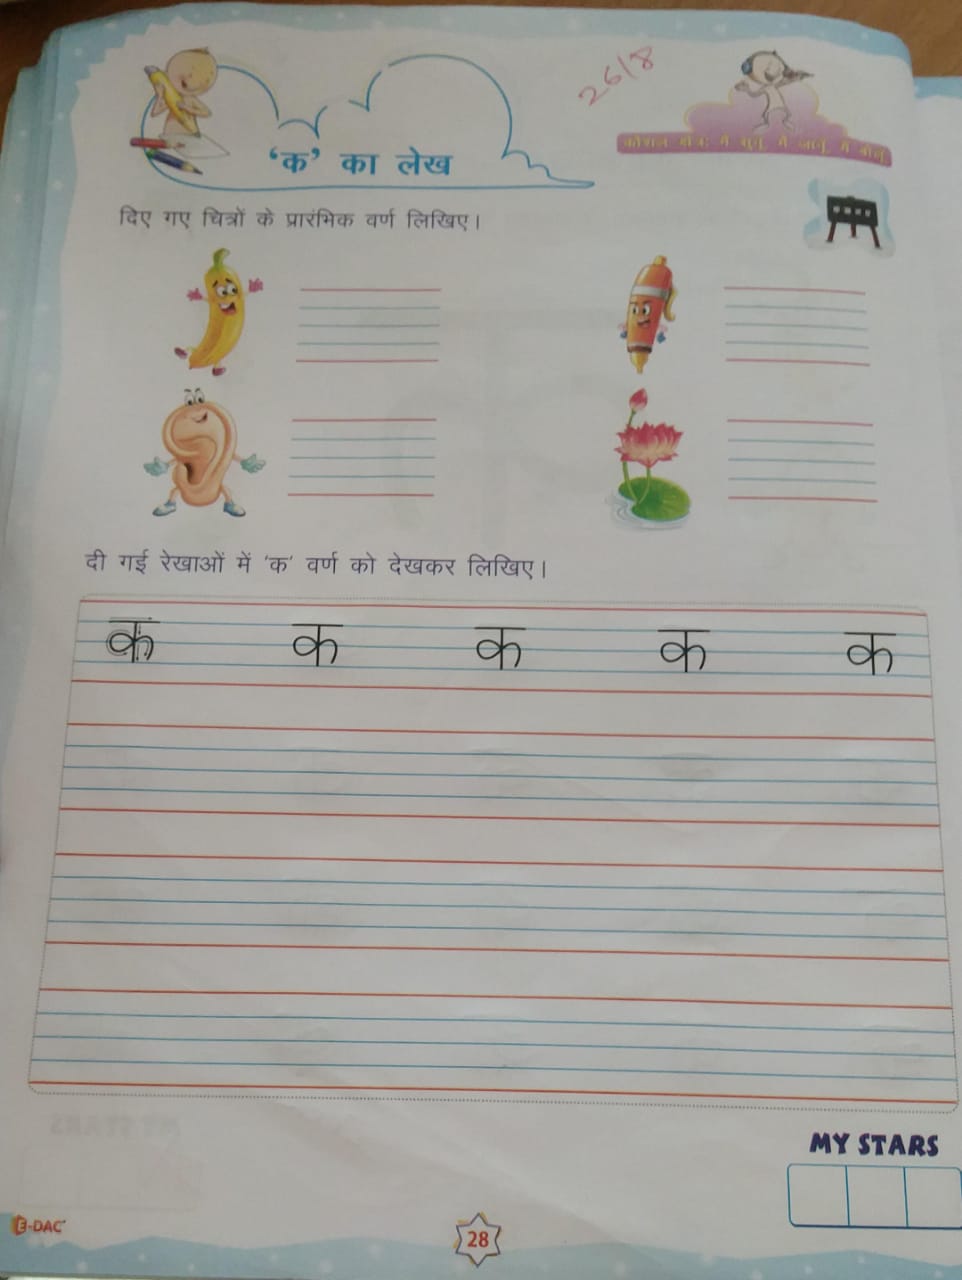 26/8
कौशल क्षेत्र: मैं सुनूँ, मैं जानूँ, मैं बोलूँ
‘क’ का लेख
दिए गए चित्रों के प्रारंभिक वर्ण लिखिए।
दी गई रेखाओं में ‘क’ वर्ण को देखकर लिखिए।
क क क क क
MY STARS
E-DAC
28